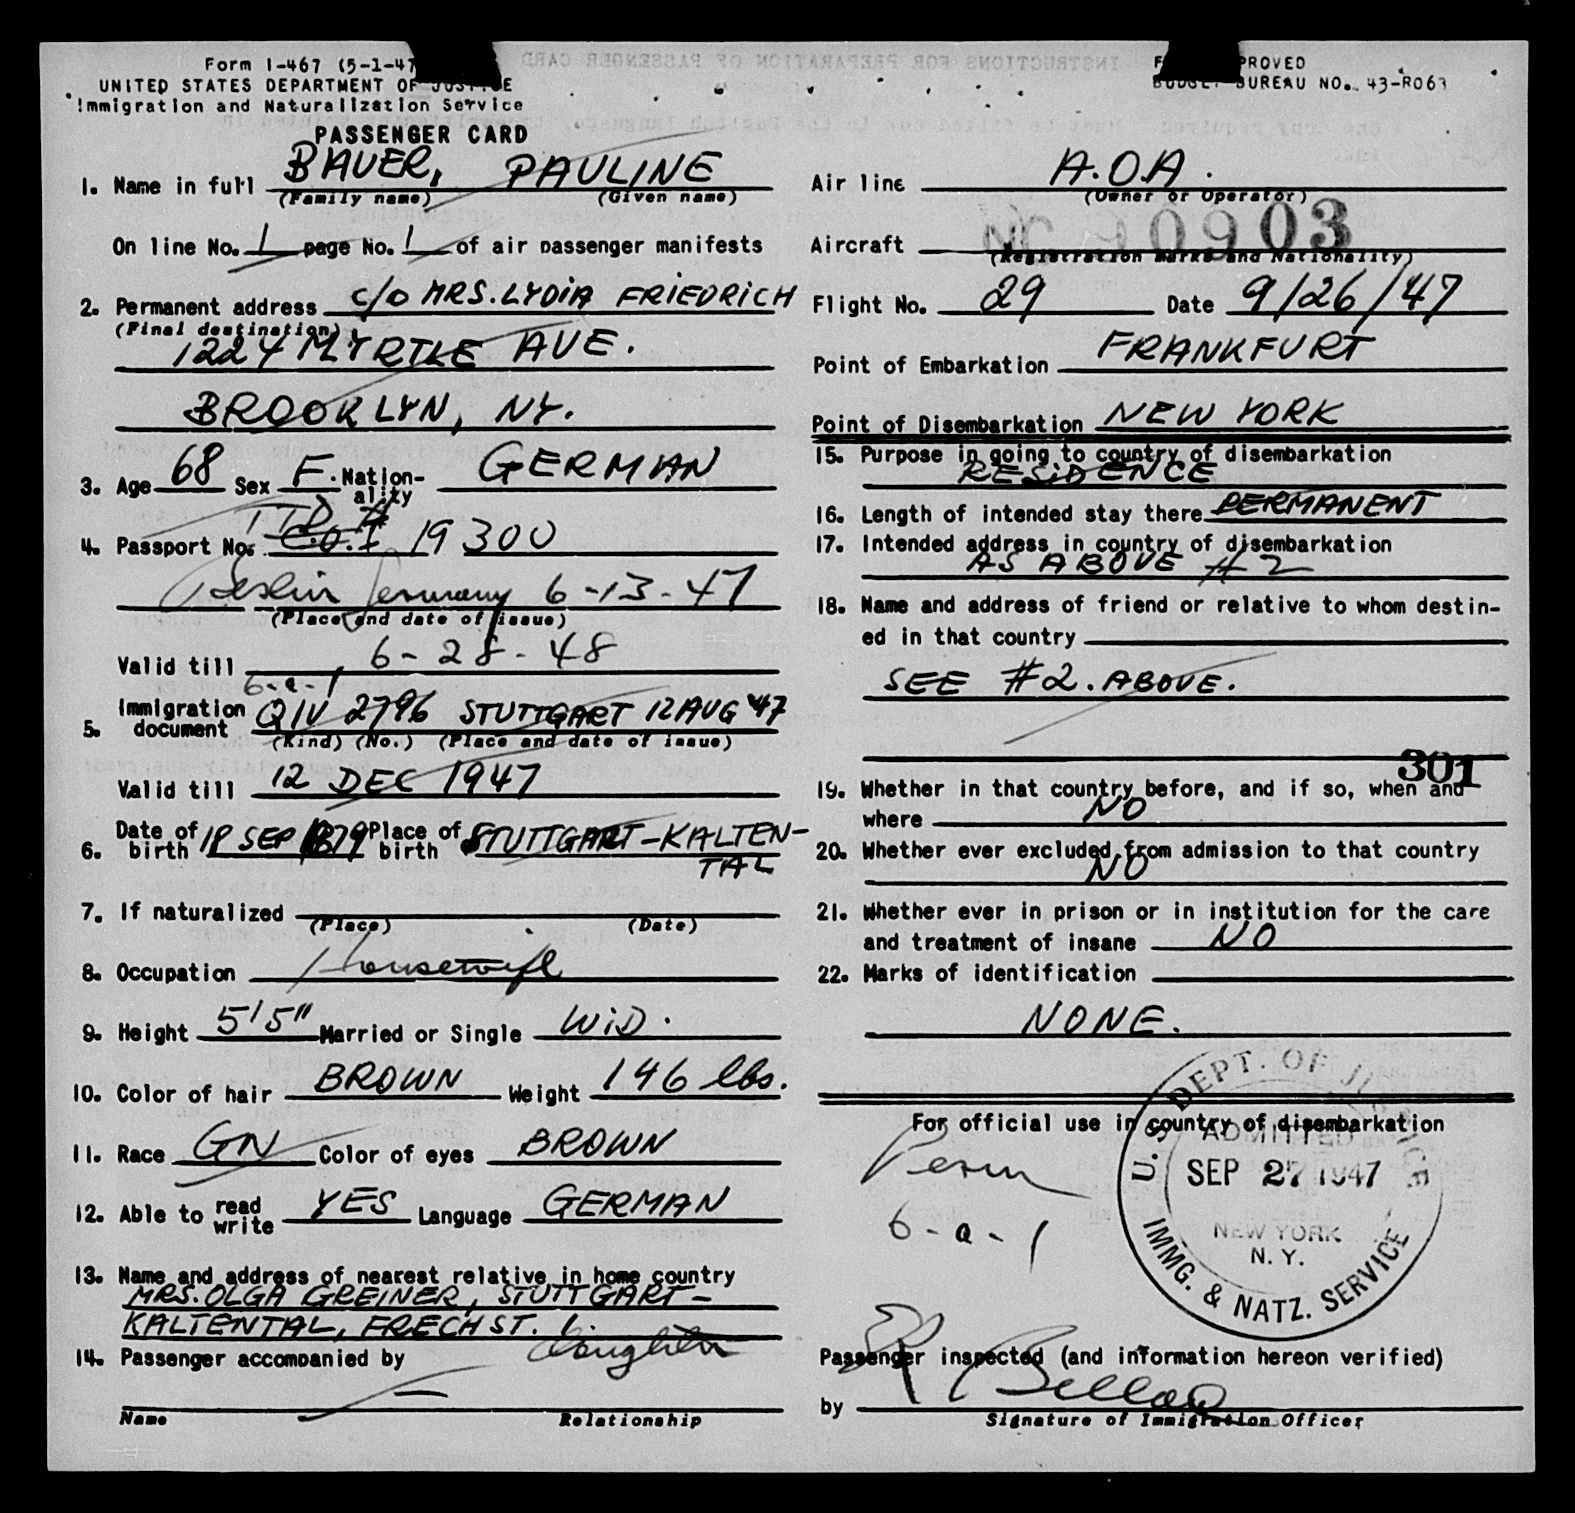 Form I-467 (5-1-47
UNITED STATES DEPARTMENT OF JUSTICE
Immigration and Naturalization Service
PASSENGER CARD
1. Name in full BAUER, PAULINE
(Family name) (Given name)
On line No. 1 page No. 1 of air passenger manifests
2. Permanent address c/o MRS. LYDIA FRIEDRICH
(Final destination)
1224 MYRTLE AVE.
BROOKLYN, NY.
3. Age 68 Sex F. Nation-ality GERMAN
TTD #
4. Passport No. C.O.I 19300
Berlin Germany 6-13-47
(Place and date of issue)
Valid till 6-28-48
6-a-1
5. Immigration document QIV 2796 STUTTGART 12 AUG '47
(Kind) (No.) (Place and date of issue)
Valid till 12 DEC 1947
6. Date of birth 18 SEP 1879 Place of birth STUTTGART-KALTEN-
TAL
7. If naturalized
(Place) (Date)
8. Occupation Housewife
9. Height 5'5" Married or Single WID.
10. Color of hair BROWN Weight 146 lbs.
11. Race GN Color of eyes BROWN
12. Able to read write YES Language GERMAN
13. Name and address of nearest relative in home country
MRS. OLGA GREINER, STUTTGART-
KALTENTAL, FRECHST. 1.
daughter
14. Passenger accompanied by
—
Name Relationship
PROVED
BUDGET BUREAU NO. 43-R063
Air line A.O.A.
(Owner or Operator)
Aircraft NC 90903
(Registration marks and Nationality)
Flight No. 29 Date 9/26/47
Point of Embarkation FRANKFURT
Point of Disembarkation NEW YORK
15. Purpose in going to country of disembarkation
RESIDENCE
16. Length of intended stay there PERMANENT
17. Intended address in country of disembarkation
AS ABOVE #2
18. Name and address of friend or relative to whom destin-
ed in that country
SEE #2. ABOVE.
301
19. Whether in that country before, and if so, when and
where NO
20. Whether ever excluded from admission to that country
NO
21. Whether ever in prison or in institution for the care
and treatment of insane NO
22. Marks of identification
NONE.
For official use in country of disembarkation
Perm
6-a-1
U.S. DEPT. OF JUSTICE
ADMITTED
SEP 27 1947
NEW YORK
N. Y.
IMMG. & NATZ. SERVICE
Passenger inspected (and information hereon verified)
by
Signature of Immigration Officer